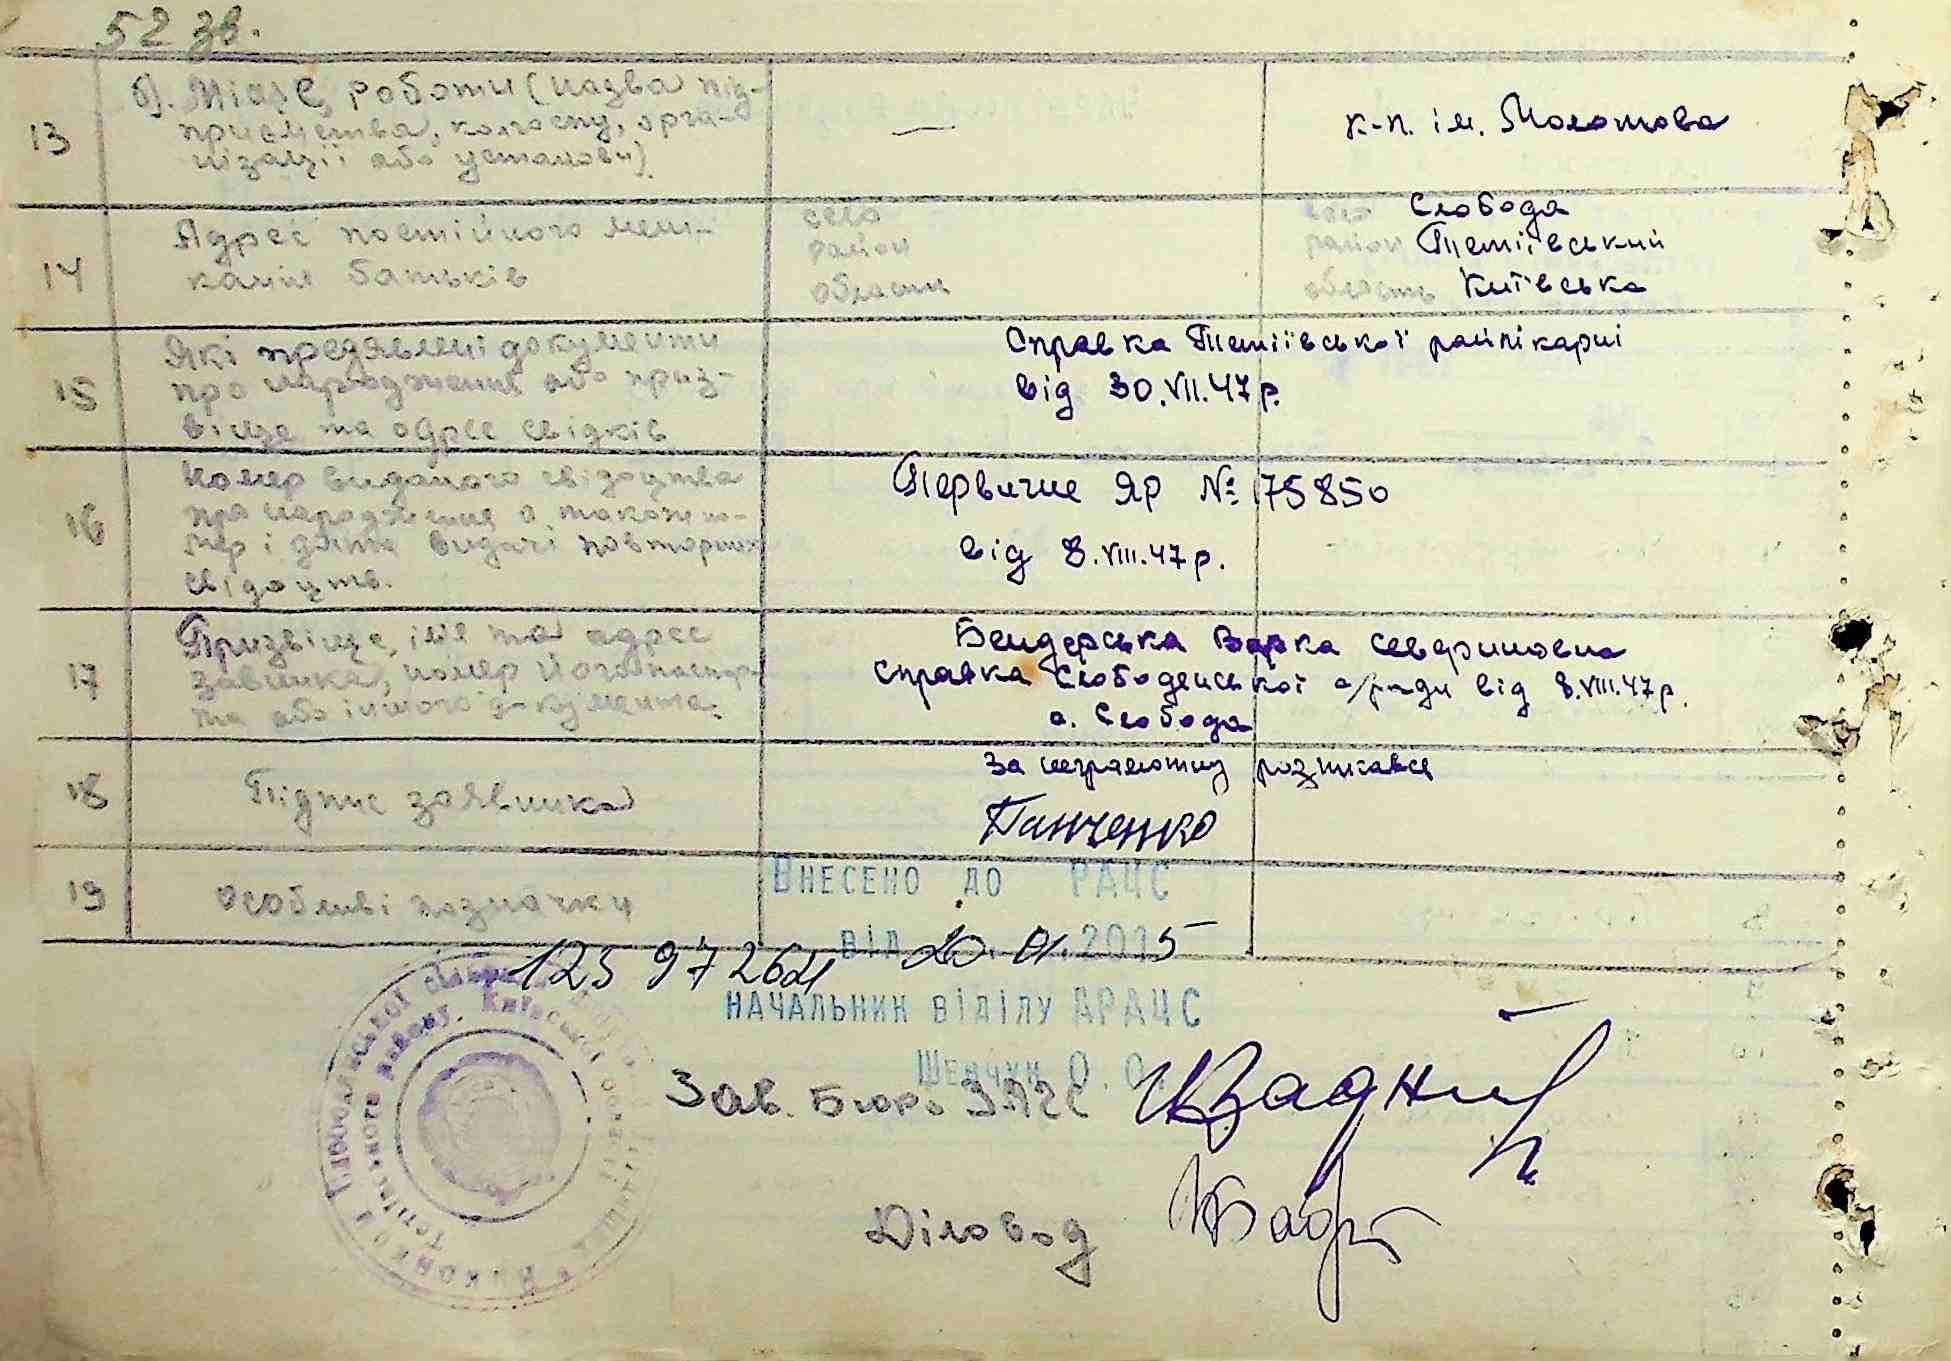 52 зв.
13
б). Місце роботи (назва під-
приємства, колгоспу, орга-
нізації або установи).
—
к-п. ім. Молотова
14
Адрес постійного меш-
кання батьків
село
район
область
село Слобода
район Тетіївський
область Київська
15
Які предявлені документи
про народження або приз-
віще та адрес свідків
Справка Тетіївської райлікарні
від 30.VII.47 р.
16
Номер виданого свідоцтва
про народження а також но-
мер і дата видачі повторних
свідоцтв.
Первичне ЯР № 175850
від 8.VIII.47 р.
17
Призвіще, імя та адрес
заявника, номер його паспор-
та або іншого документа.
Бендерська Варка Севериновна
справка Слободенської с/ради від 8.VIII.47 р.
с. Слобода
18
Підпис заявника
За неграмотну розписався
Панченко
19
Особливі позначки
Внесено до РАЦС
від 20.01.2015
12597264
начальник відділу ДРАЦС
Шевчук О.О.
Зав. Бюро ЗАГС
Діловод